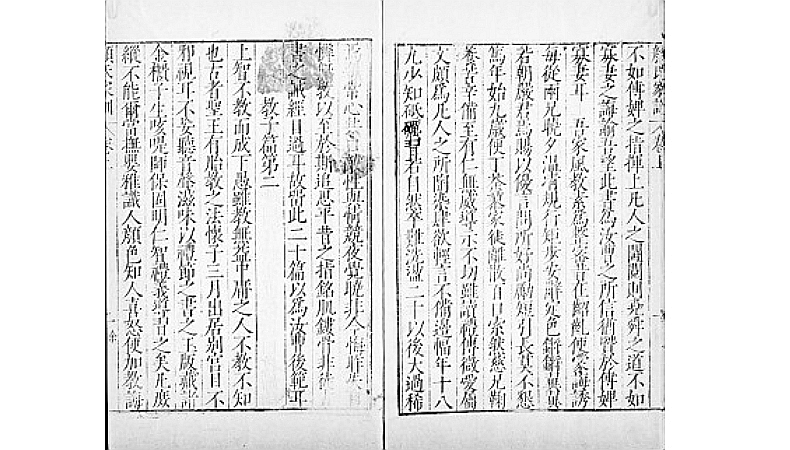 顏氏家訓 卷上
不如傅婢之指揮止凡人之鬭鬩則堯舜之道不如
寡妻之誨諭吾望此書為汝曹之所信猶賢於傅婢
寡妻耳 吾家風教素為整密昔在齠齔便蒙誨誘
每從兩兄曉夕溫凊規行矩步安辭定色鏘鏘翼翼
若朝嚴君焉賜以優言問所好尚勵短引長莫不懇
篤年始九歲便丁荼蓼家徒離散百口索然慈兄鞠
養苦辛備至有仁無威導示不切雖讀禮傳微愛屬
文頗為凡人之所陶染肆欲輕言不備邊幅年十八
九少知砥礪習若自然卒難洗盪二十以後大過稀
焉 常心共口敵性與情競夜覺曉非今悔昨失自
憐無教以至於斯追思平昔之指銘肌鏤骨非徒
書之誡經目過耳故留此二十篇以為汝曹後範耳
教子篇第二
上智不教而成下愚雖教無益中庸之人不教不知
也古者聖王有胎教之法懷子三月出居別宮目不
邪視耳不妄聽音聲滋味以禮節之書之玉版藏諸
金櫃子生咳㖷師保固明仁智禮義導習之矣凡庶
縱不能爾當撫嬰稚識人顏色知人喜怒便加教誨
顏氏家訓 卷上